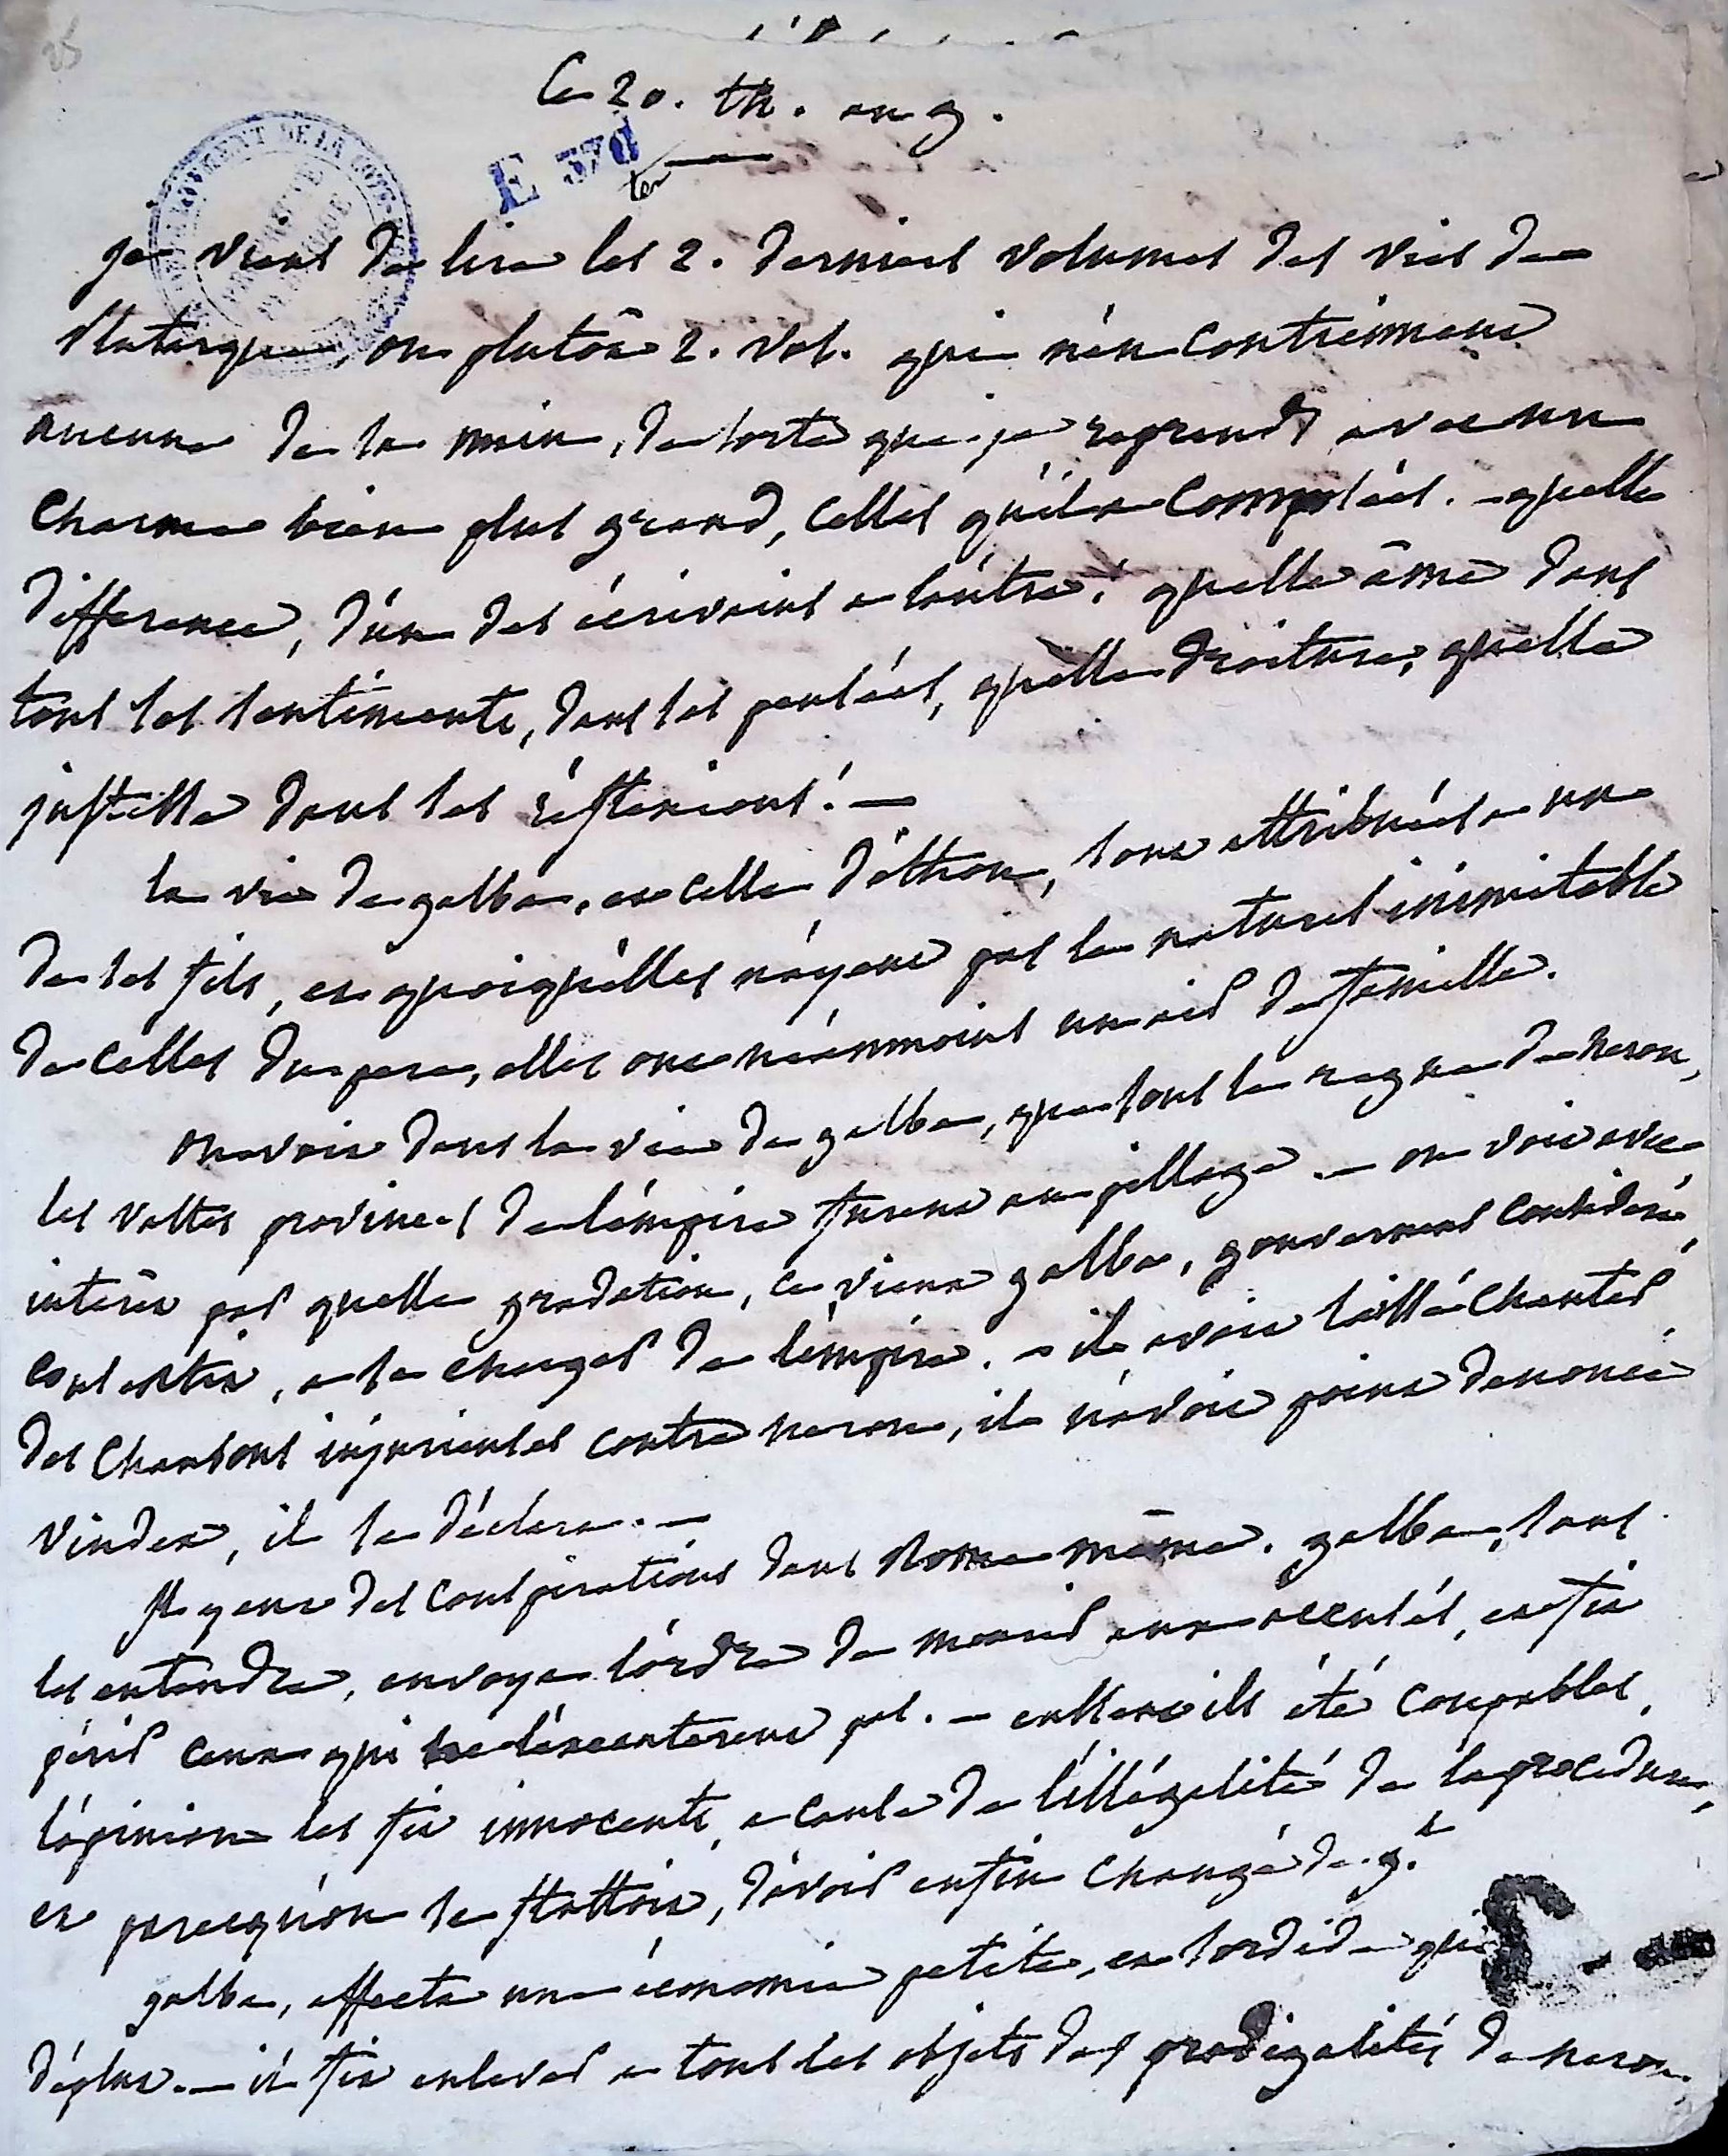 25
Ce 20. th. an 9.
E 378
ter
DE LA COTE
je viens de lire les 2. derniers volumes des vies de
Plutarque, ou plutôt 2. vol. qui n'en contiennent
aucune de sa main, de sorte que je reprends avec un
charme bien plus grand, celles qu'il a composées. - quelle
différence, d'un des écrivains a l'autre! quelle âme dans
tous ses sentiments, dans ses pensées, quelle droiture, quelle
justesse dans ses réflexions! -
la vie de galba, et celle d'othon, sont attribuées a un
de ses fils, et quoiqu'elles n'ayent pas le naturel inimitable
de celles du pere, elles ont néanmoins un air de famille.
on voit dans la vie de galba, que sous le regne de neron,
les vastes provinces de l'empire furent au pillage. - on voit avec
intérêt par quelle gradation, ce vieux galba, gouverneur considéré,
consentit, a se charger de l'empire. - il avoit laissé chanter
des chansons injurieuses contre neron, il n'avoit point denoncé
vindex, il se déclara. -
Il y eut des conspirations dans Rome même. galba, sans
les entendre, envoya l'ordre de mourir aux accusés, et fit
périr ceux qui ne s'exécuterent pas. - eussent ils été coupables,
l'opinion les fit innocents, a cause de l'illégalité de la procédure,
et parcequ'on se flattoit, d'avoir enfin changé de g.t
galba, affecta une économie petite, et sordide qui
déplut. - il fit enlever a tous les objets des prodigalités de neron.